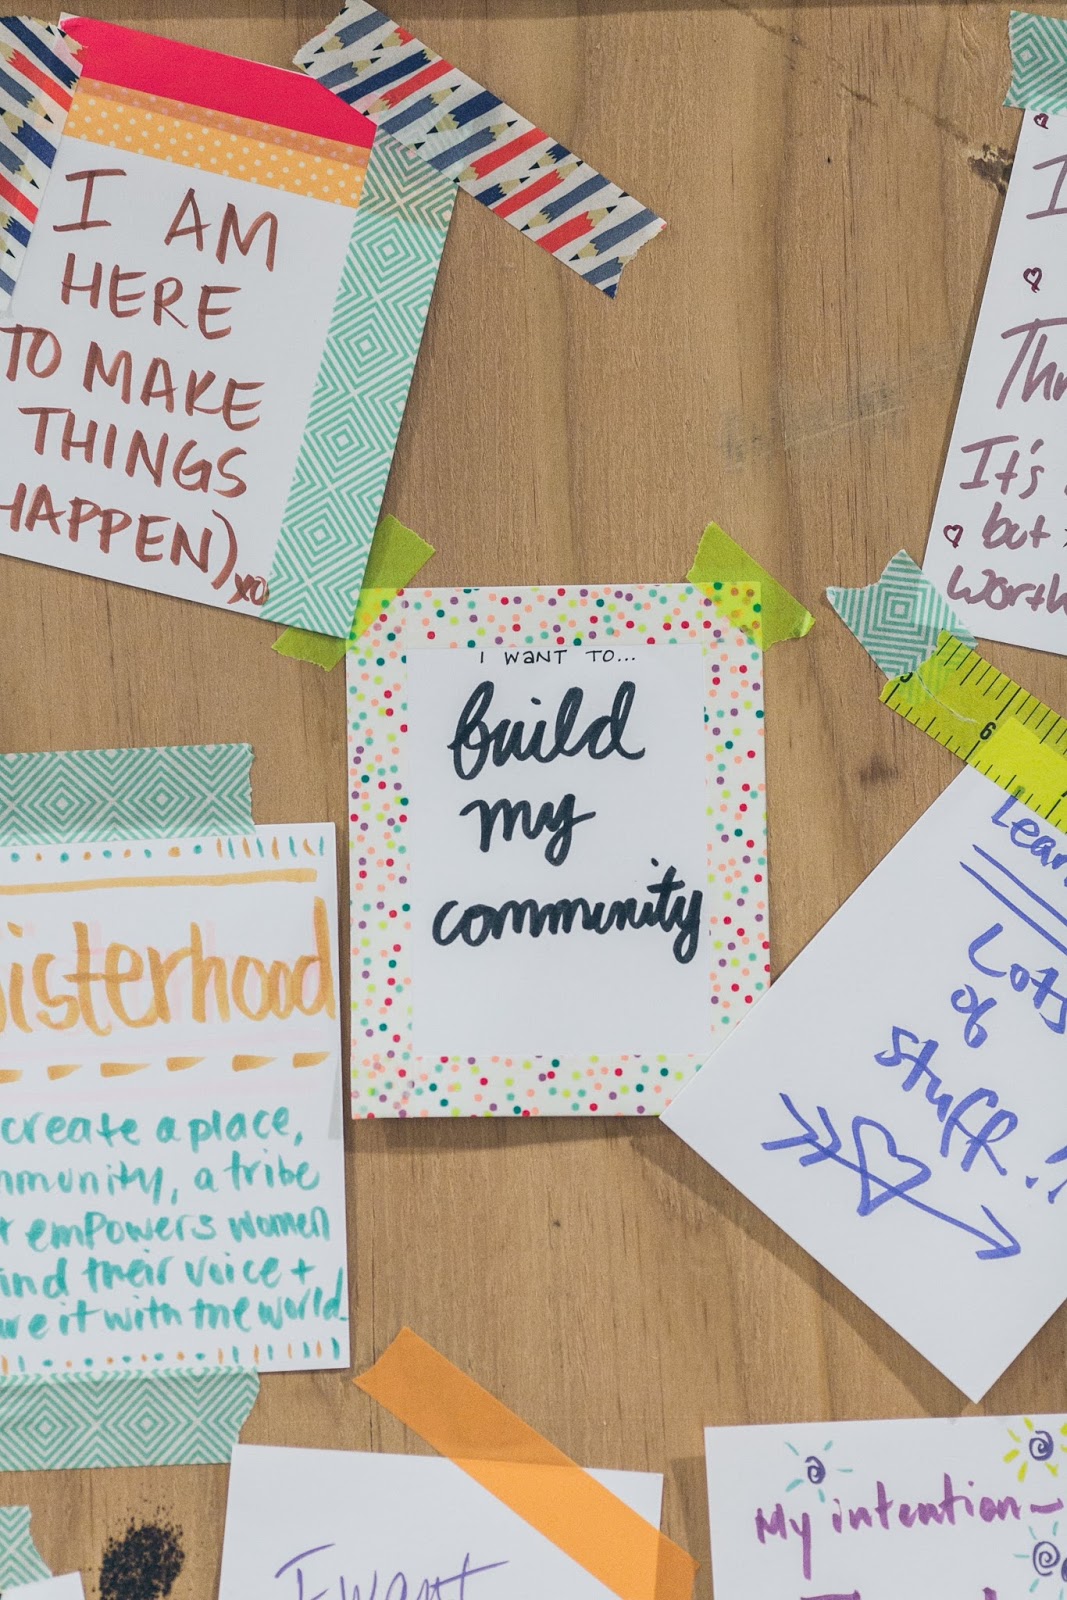 I AM
HERE
TO MAKE
THINGS
HAPPEN)
xo
I
It's
but
worth
I WANT TO...
build
my
community
6
Lots
of
stuff!!
Sisterhood
create a place,
community, a tribe
empowers women
find their voice +
share it with the world.
I want
My intention—